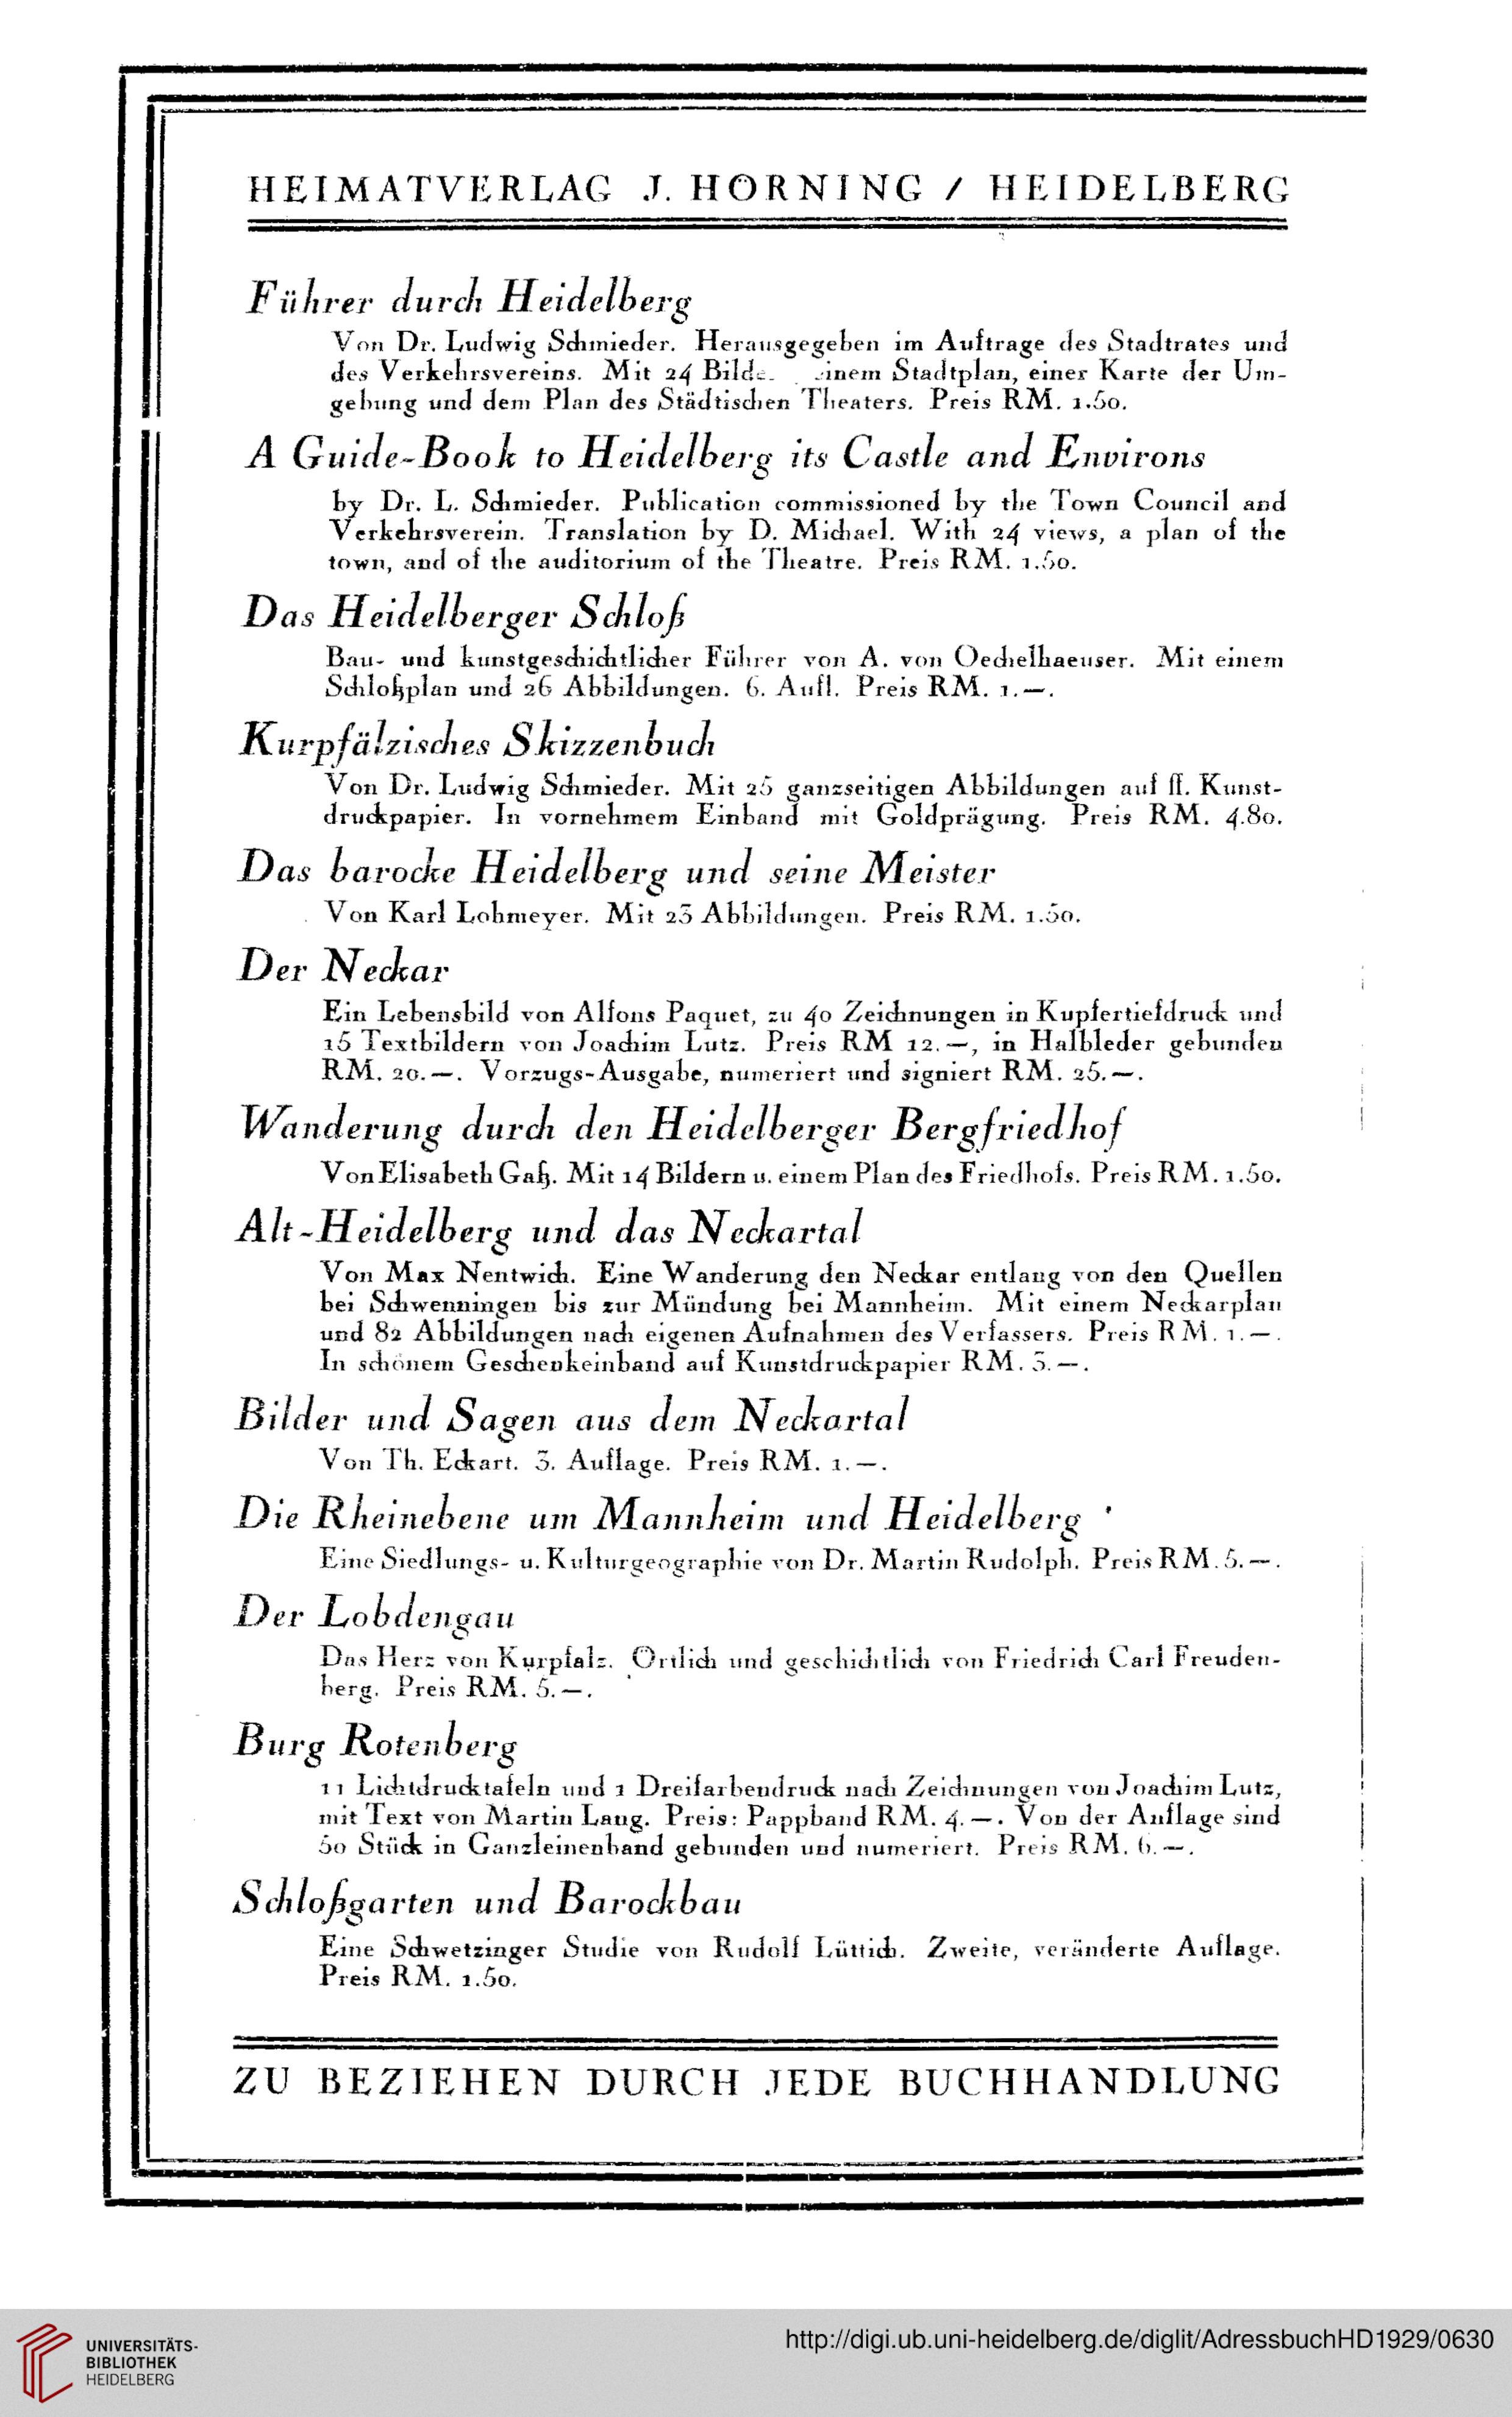 HEIMATVERLAG J. HÖRNING / HEIDELBERG
Führer durch Heidelberg
Von Dr. Ludwig Schmieder. Herausgegeben im Auftrage des Stadtrates und
des Verkehrsvereins. Mit 24 Stadtplan, einer Karte der Um-
gebung und dem Plan des Städtischen Theaters. Preis RM. 1.50.
A Guide-Book to Heidelberg its Castle and Environs
by Dr. L. Schmieder. Publication commissioned by the Town Council and
Verkehrsverein. Translation by D. Michael. With 24 views, a plan of the
town, and of the auditorium of the Theatre. Preis RM. 1.50.
Das Heidelberger Schloß
Bau- und kunstgeschichtlicher Führer von A. von Oechelhaeuser. Mit einem
Schloßplan und 26 Abbildungen. 6. Aufl. Preis RM. 1.—.
Kurpfälzisches Skizzenbuch
Von Dr. Ludwig Schmieder. Mit 25 ganzseitigen Abbildungen auf ff. Kunst-
druckpapier. In vornehmem Einband mit Goldprägung. Preis RM. 4.80.
Das barocke Heidelberg und seine Meister
Von Karl Lohmeyer. Mit 23 Abbildungen. Preis RM. 1.50.
Der Neckar
Ein Lebensbild von Alfons Paquet, zu 40 Zeichnungen in Kupfertiefdruck und
15 Textbildern von Joachim Lutz. Preis RM 12.—, in Halbleder gebunden
RM. 20.—. Vorzugs-Ausgabe, numeriert und signiert RM. 25.—.
Wanderung durch den Heidelberger Bergfriedhof
Von Elisabeth Gaß. Mit 14 Bildern u. einem Plan des Friedhofs. Preis RM. 1.50.
Alt-Heidelberg und das Neckartal
Von Max Nentwich. Eine Wanderung den Neckar entlang von den Quellen
bei Schwenningen bis zur Mündung bei Mannheim. Mit einem Neckarplan
und 82 Abbildungen nach eigenen Aufnahmen des Verfassers. Preis RM. 1.—.
In schönem Geschenkeinband auf Kunstdruckpapier RM. 3.—.
Bilder und Sagen aus dem Neckartal
Von Th. Eckart. 3. Auflage. Preis RM. 1.—.
Die Rheinebene um Mannheim und Heidelberg
Eine Siedlungs- u. Kulturgeographie von Dr. Martin Rudolph. Preis RM. 5.—.
Der Lobdengau
Das Herz von Kurpfalz. Örtlich und geschichtlich von Friedrich Carl Freuden-
berg. Preis RM. 5.—.
Burg Rotenberg
11 Lichtdrucktafeln und 1 Dreifarbendruck nach Zeichnungen von Joachim Lutz,
mit Text von Martin Lang. Preis: Pappband RM. 4.—. Von der Auflage sind
50 Stück in Ganzleinenband gebunden und numeriert. Preis RM. 6.—.
Schloßgarten und Barockbau
Eine Schwetzinger Studie von Rudolf Lüttich. Zweite, veränderte Auflage.
Preis RM. 1.50.
ZU BEZIEHEN DURCH JEDE BUCHHANDLUNG
UNIVERSITÄTS-
BIBLIOTHEK
HEIDELBERG
http://digi.ub.uni-heidelberg.de/diglit/AdressbuchHD1929/0630